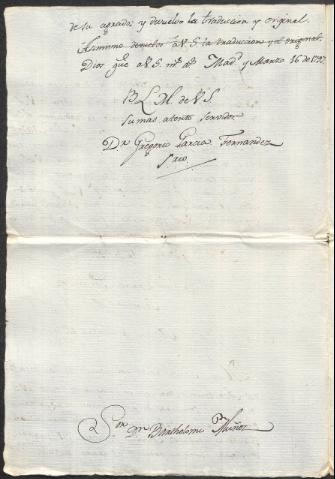 de su agrado; y devuelvo la traduccion y original.
Asimismo devuelvo a V.S. la traduccion y el original.
Dios gue a V.S. ms. as. Madd. y Marzo 16 de 1797.
B L M de V.S.
su mas atento servidor
Dr. Gregorio Garcia Fernandez
Srio
Sor. Dn. Bartholome Muñoz